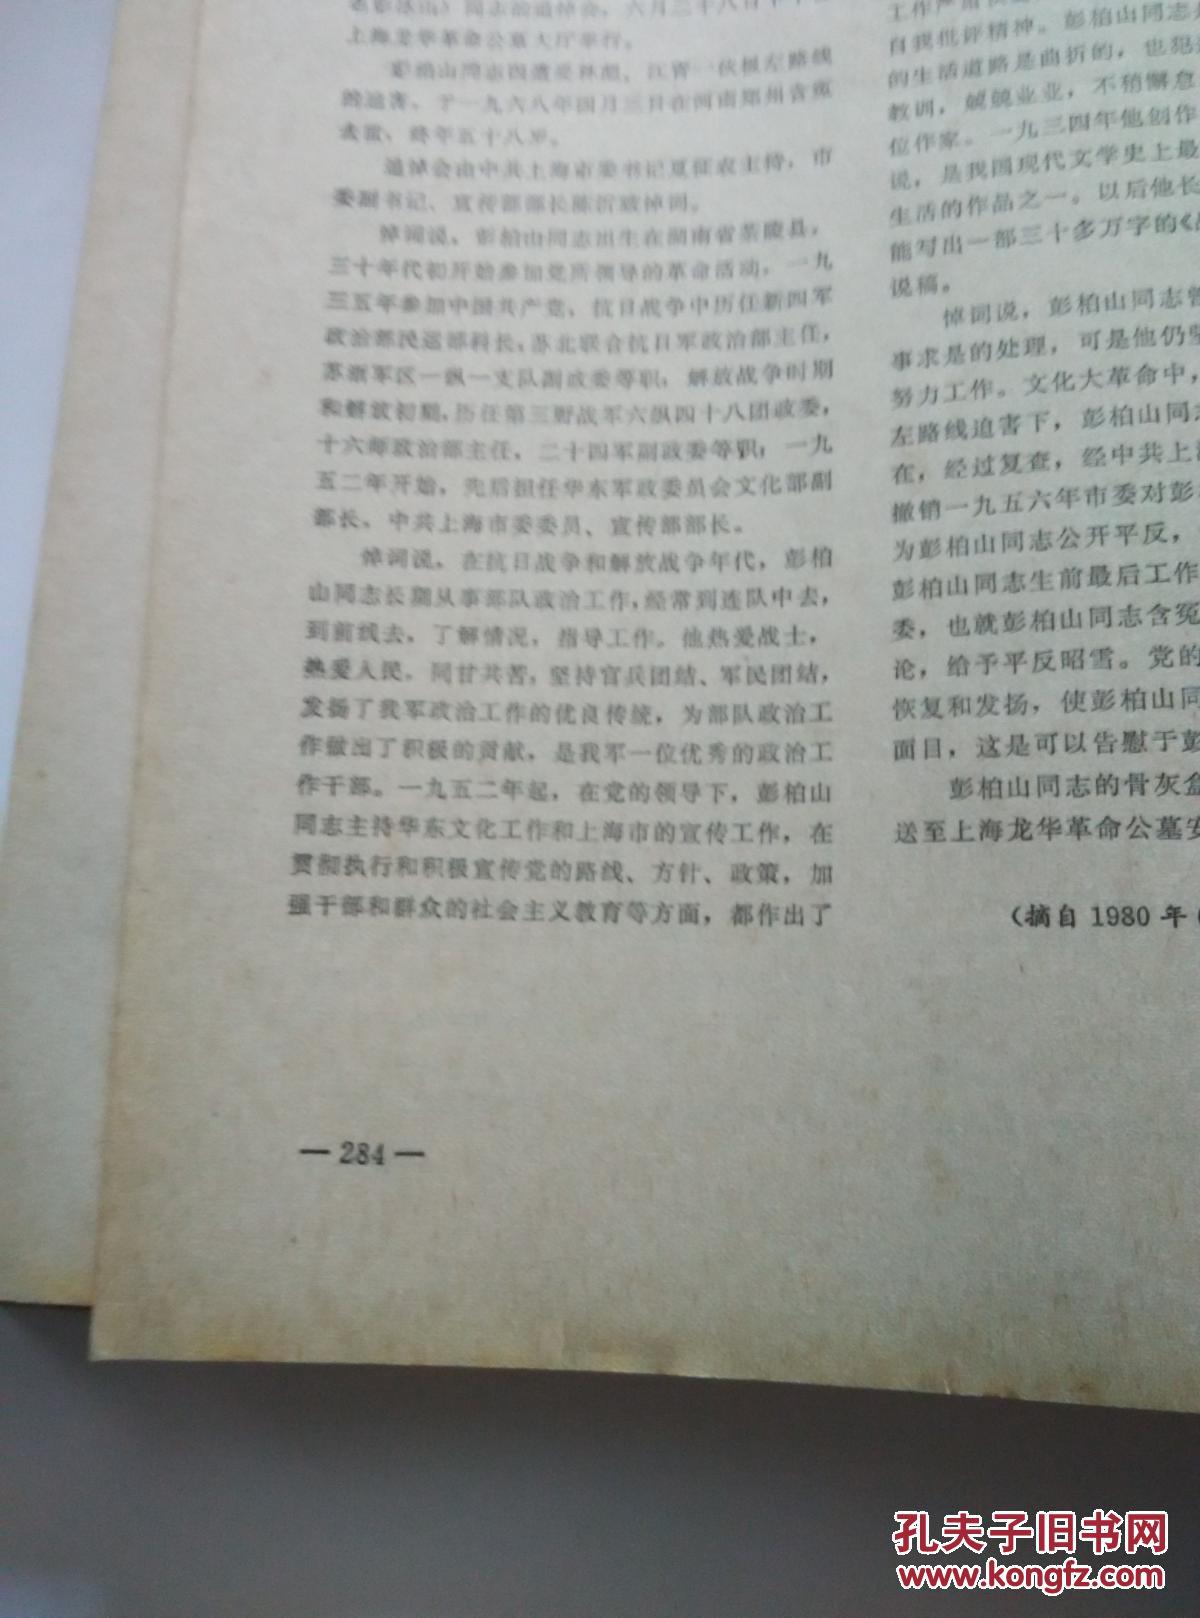 上海龙华革命公墓大厅举行。
彭柏山同志因遭受林彪、江青一伙极左路线
的迫害，于一九六八年四月三日在河南郑州含冤
去世，终年五十八岁。
追悼会由中共上海市委书记夏征农主持，市
委副书记、宣传部部长陈沂致悼词。
悼词说，彭柏山同志出生在湖南省茶陵县，
三十年代初开始参加党所领导的革命活动，一九
三五年参加中国共产党，抗日战争中历任新四军
政治部民运部科长，苏北联合抗日军政治部主任，
苏浙军区一纵一支队副政委等职；解放战争时期
和解放初期，历任第三野战军六纵四十八团政委，
十六师政治部主任，二十四军副政委等职；一九
五二年开始，先后担任华东军政委员会文化部副
部长，中共上海市委委员、宣传部部长。
悼词说，在抗日战争和解放战争年代，彭柏
山同志长期从事部队政治工作，经常到连队中去，
到前线去，了解情况，指导工作。他热爱战士，
热爱人民，同甘共苦，坚持官兵团结、军民团结，
发扬了我军政治工作的优良传统，为部队政治工
作做出了积极的贡献，是我军一位优秀的政治工
作干部。一九五二年起，在党的领导下，彭柏山
同志主持华东文化工作和上海市的宣传工作，在
贯彻执行和积极宣传党的路线、方针、政策，加
强干部和群众的社会主义教育等方面，都作出了
自我批评精神。彭柏山同志
的生活道路是曲折的，也犯
教训，兢兢业业，不稍懈怠
位作家。一九三四年他创作
说，是我国现代文学史上最
生活的作品之一。以后他长
能写出一部三十多万字的《
说稿。
悼词说，彭柏山同志曾
事求是的处理，可是他仍坚
努力工作。文化大革命中，
左路线迫害下，彭柏山同志
在，经过复查，经中共上海
撤销一九五六年市委对彭
为彭柏山同志公开平反，
彭柏山同志生前最后工作
委，也就彭柏山同志含冤
论，给予平反昭雪。党的
恢复和发扬，使彭柏山同
面目，这是可以告慰于彭
彭柏山同志的骨灰盒
送至上海龙华革命公墓安
（摘自 1980 年
— 284 —
孔夫子旧书网
www.kongfz.com